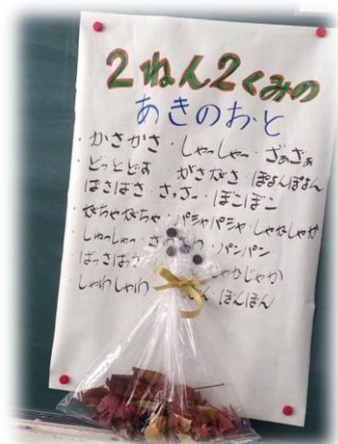 2ねん2くみの
あきのおと
・かさかさ・しゃっしゃっ・ざぁざぁ
・どっとどす がさがさ・ぽよんぽよん
ばさばさ・さっさっ・ぽこぽこ
・ぐちゃぐちゃ・パシャパシャ・しゃかしゃか
・しゅっしゅっ パンパン
・ばっさばっさ じゃかじゃか
・しゃわしゃわ ぽんぽん